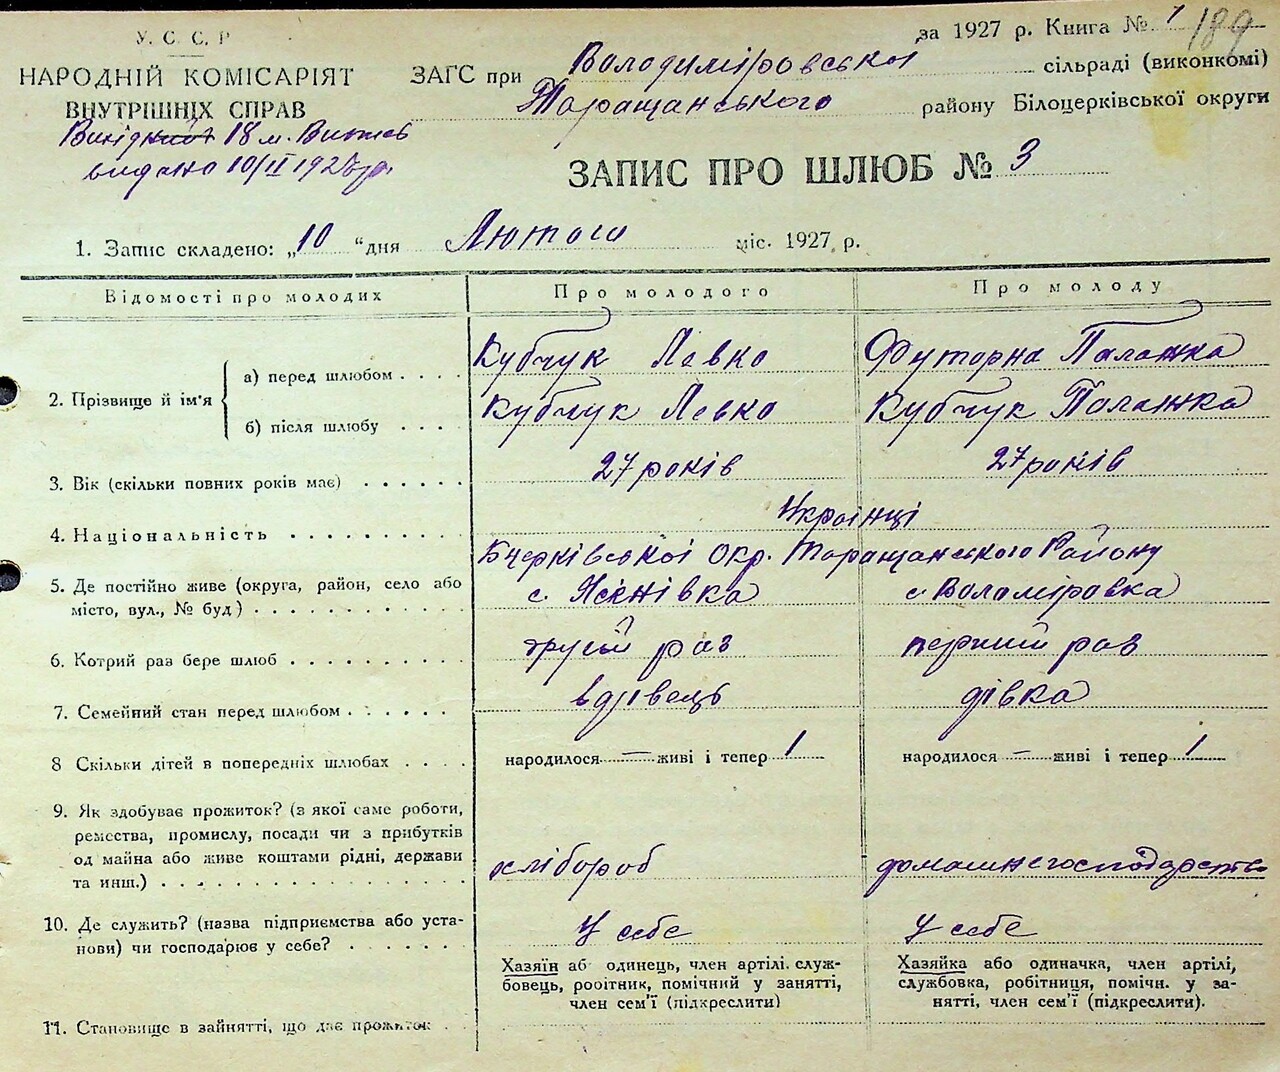 У. С. С. Р
НАРОДНІЙ КОМІСАРІЯТ
ВНУТРІШНІХ СПРАВ
18 м.
видано 10/II 1927 р.
за 1927 р. Книга № 1 189
ЗАГС при Володиміровської сільраді (виконкомі)
Таращанського району Білоцерківської округи
ЗАПИС ПРО ШЛЮБ № 3
1. Запис складено: „10 “дня Лютого міс. 1927 р.
Відомості про молодих Про молодого Про молоду
2. Прізвище й ім'я
а) перед шлюбом . . . . Кубчук Левко Футорна Палажка
б) після шлюбу . . . . Кубчук Левко Кубчук Палажка
3. Вік (скільки повних років має) . . . . . . 27 років 27 років
4. Національність . . . . . . . . . . Українці
Бчерківської Окр. Таращанського Району
5. Де постійно живе (округа, район, село або
місто, вул., № буд) . . . . . . . . . . . . с. Ясенівка с. Володміровка
6. Котрий раз бере шлюб . . . . . . . . . . . другий раз перший раз
7. Семейний стан перед шлюбом . . . . . . вдівець дівка
8 Скільки дітей в попередніх шлюбах . . . . народилося = живі і тепер 1 народилося = живі і тепер 1
9. Як здобуває прожиток? (з якої саме роботи,
ремества, промислу, посади чи з прибутків
од майна або живе коштами рідні, держави
та инш.) . . . . . . . . . . . . . . . . . хлібороб домашнє господарство
10. Де служить? (назва підприємства або уста-
нови) чи господарює у себе? . . . . . . У себе У себе
Хазяїн аб одинець, член артілі. служ-
бовець, рооітник, помічний у занятті,
член сем'ї (підкреслити)
Хазяйка або одиначка, член артілі,
службовка, робітниця, помічн. у за-
нятті, член сем'ї (підкреслити).
11. Становище в зайнятті, що дає прожиток . .